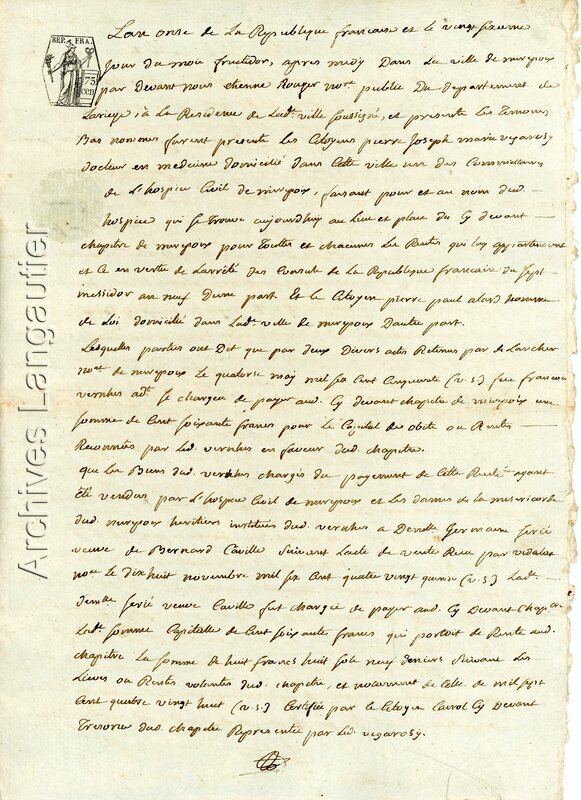 REP. FRA.
75 cen
Lan onze de La Republique francaise et le vingt sixieme
jour du mois fructidor, apres midy Dans La ville de mirepoix
par Devant nous etienne Rouger nore. publie Du Departement de
Lariege, a La Residence de Ladt. ville soussigné, et presents Les temoins
Bas nommes furent presents Les Citoyens pierre Joseph marie vigarosy
docteur en medecine domicilié dans Cette ville un des Commissaires
de L'hospice Civil de mirepoix, faisant pour et au nom dud.
hospice qui se trouve aujourdhuy au Lieu et place du Cy devant
chapitre de mirepoix pour toutes et chacunes Les Rentes qui luy appartenoient
et Ce en vertu de Larrété des Consuls de La Republique francaise du sept
messidor an neuf dune part. Et Le Citoyen pierre paul alard homme
de Loi domicilié dans Ladt. ville de mirepoix Dautre part.
Lesquelles parties ont Dit que par deux Divers actes Retenus par de Larcher
nore. de mirepoix Le quatorse may mil six Cent Cinquante (v.s.) feu francois
vernhes adt. se chargea de payer aud. Cy devant chapitre de mirepoix une
somme de Cent soixante francs pour Le Capital des obits ou Rentes
Reconnües par Led. vernhes en faveur dud. chapitre.
que Les Biens dud. vernhes chargés du payement de Cette Rente ayant
été vendus par L'hospice Civil de mirepoix et Les dames de La misericorde
dud. mirepoix heritiers institués dud. vernhes a Demlle Germaine serié
veuve de Bernard Caville suivant Lacte de vente Reçu par vidalat
nore Le dix huit novembre mil six Cent quatre vingt quinse (v.s.) Ladt.
demlle serié veuve Caville fut chargée de payer aud. Cy Devant chapre.
Ladt. somme Capitelle de Cent soixante francs qui portoit de Rente aud.
chapitre La somme de huit francs huit sols neuf deniers suivant Les
Lieves ou Rentes volentes dud. chapitre, et notamment de Celle de mil sept
Cent quatre vingt huit (v.s.) Certifiée par Le Citoyen Cairol Cy Devant
Tresorier dud. chapitre Representée par Led. vigarosy.
Archives Langautier